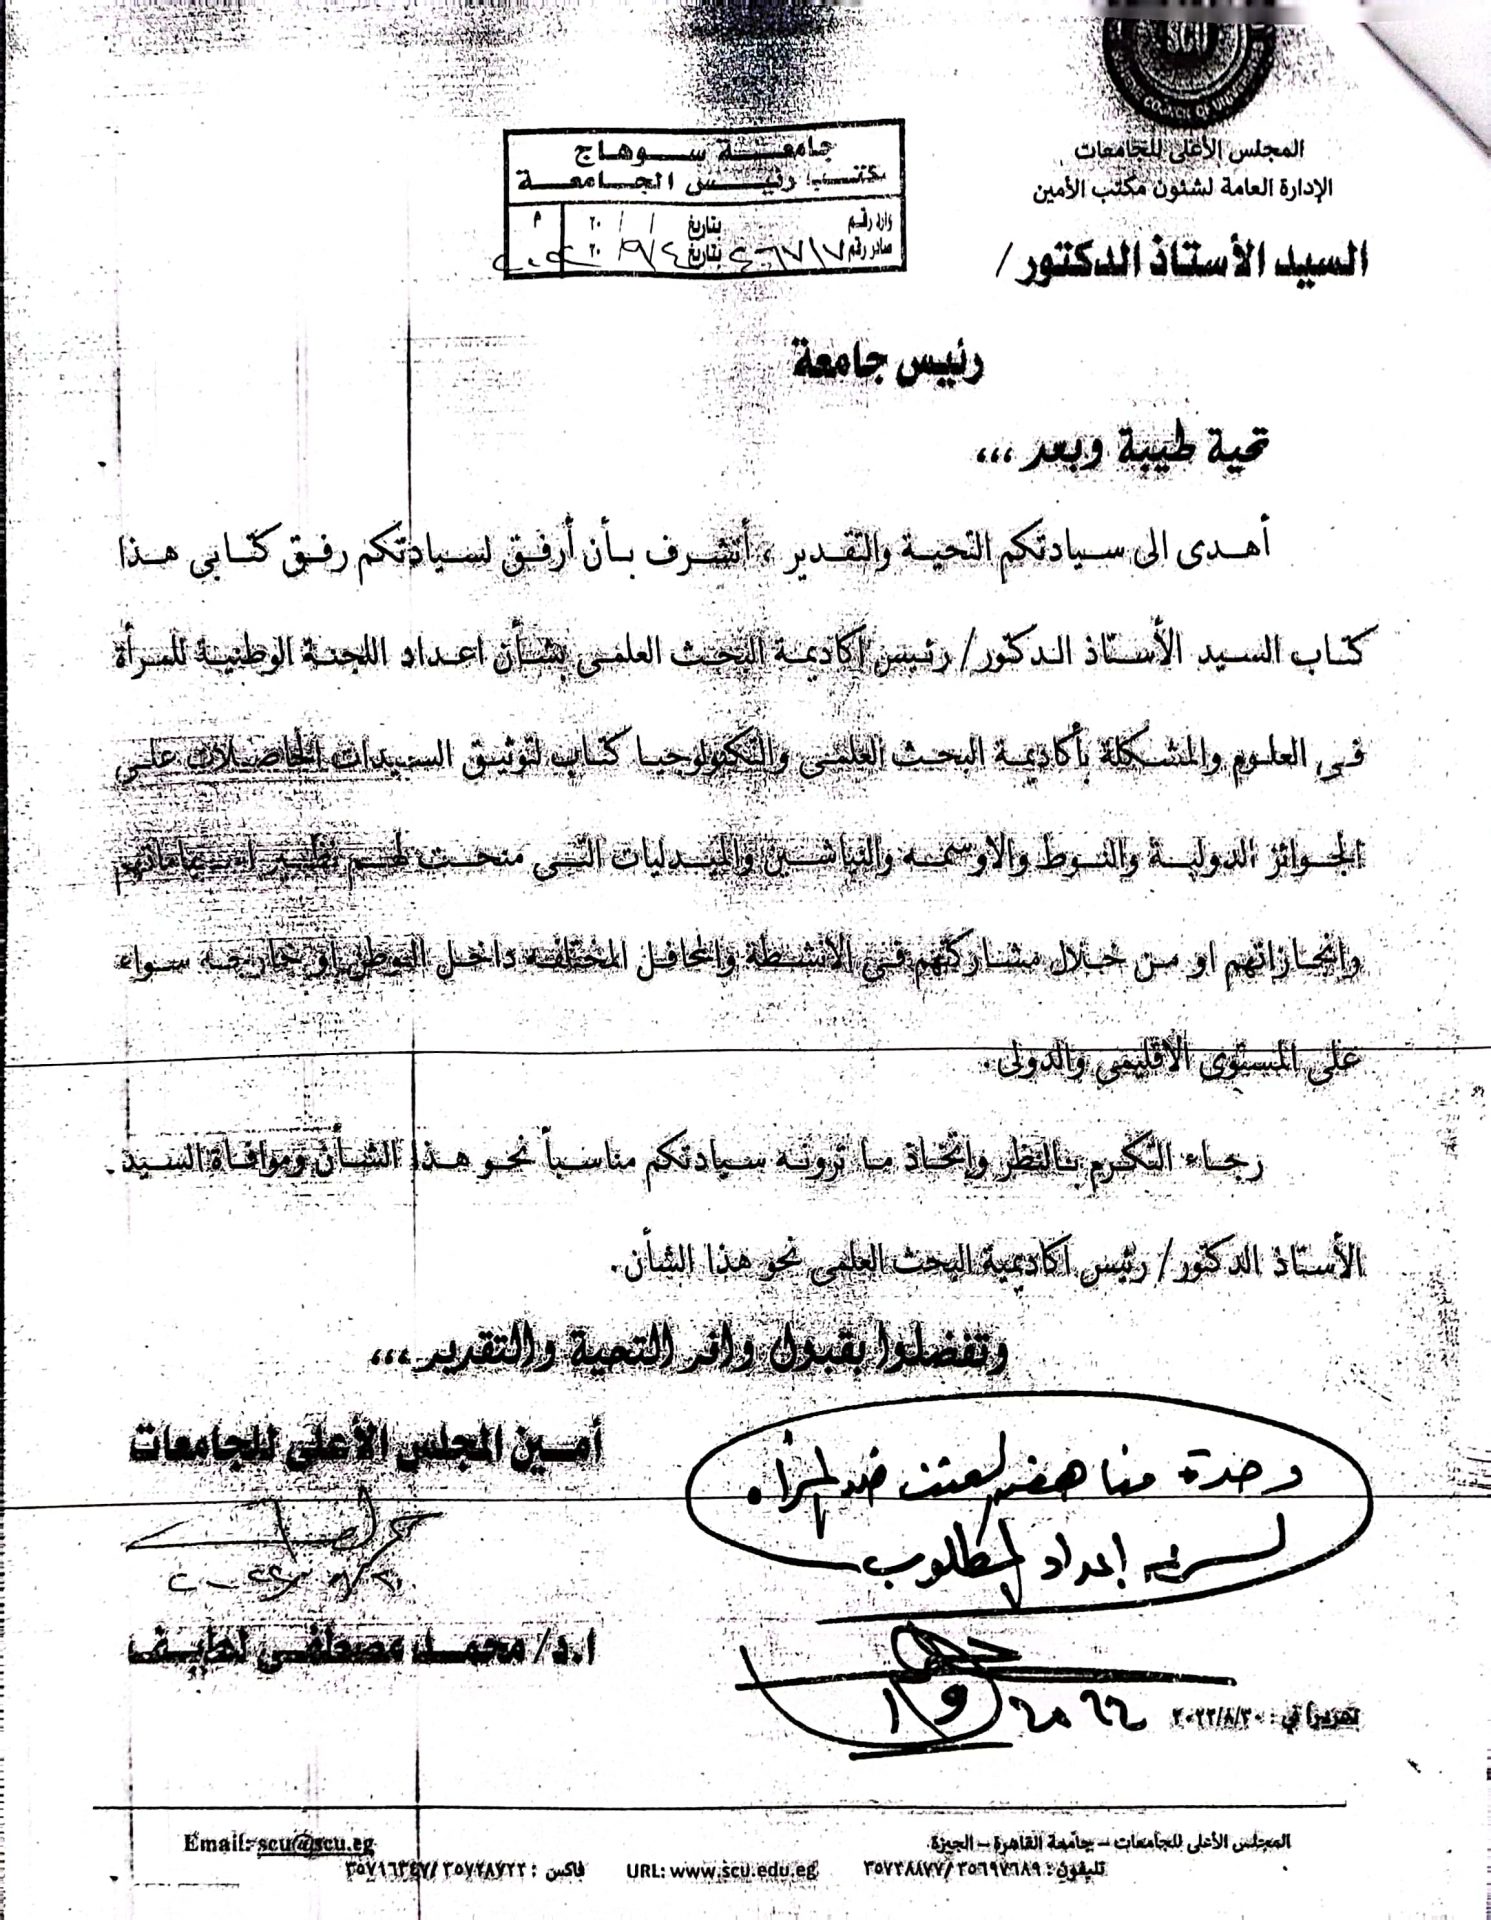 SCU
SUPREME COUNCIL OF UNIVERSITIES
المجلس الأعلى للجامعات
الإدارة العامة لشئون مكتب الأمين
جامعة سوهاج
مكتب رئيس الجامعة
وارد رقم بتاريخ / / ٢٠ م
صادر رقم بتاريخ ٢٠
السيد الأستاذ الدكتور /
رئيس جامعة
تحية طيبة وبعد ,,,
أهدى الى سيادتكم التحية والتقدير ، أتشرف بأن أرفق لسيادتكم رفق كتابي هذا
كتاب السيد الأستاذ الدكتور/ رئيس اكاديمة البحث العلمى بشأن اعداد اللجنة الوطنية للمرأة
فى العلوم والمشكلة بأكاديمة البحث العلمى والتكنولوجيا كتاب لتوثيق السيدات الحاصلات على
الجوائز الدولية والنوط والاوسمه والنياشين والميدليات التى منحت لهم نظير اسهاماتهم
وانجازاتهم او من خلال مشاركتهم فى الانشطة والمحافل المختلفه داخل الوطن او خارجه سواء
على المستوى الاقليمى والدولى.
رجاء التكرم بالنظر وإتخاذ ما ترونه سيادتكم مناسباً نحو هذا الشأن وموافاة السيد
الأستاذ الدكتور/ رئيس اكاديمية البحث العلمى نحو هذا الشأن.
وتفضلوا بقبول وافر التحية والتقدير ,,,
أمين المجلس الأعلى للجامعات
وحدة مناهضة العنف ضد المرأة
لسرعة إعداد المطلوب
ا.د/ محمد مصطفى لطيف
٢٠٢٢
تحريرا في : ٢٠٢٢/٨/٣٠
المجلس الأعلى للجامعات – جامعة القاهرة – الجيزة
Email: scu@scu.eg
تليفون : ٣٥٧٣٨٨٧٧/٣٥٦٩٧٦٨٩
URL: www.scu.edu.eg
فاكس :